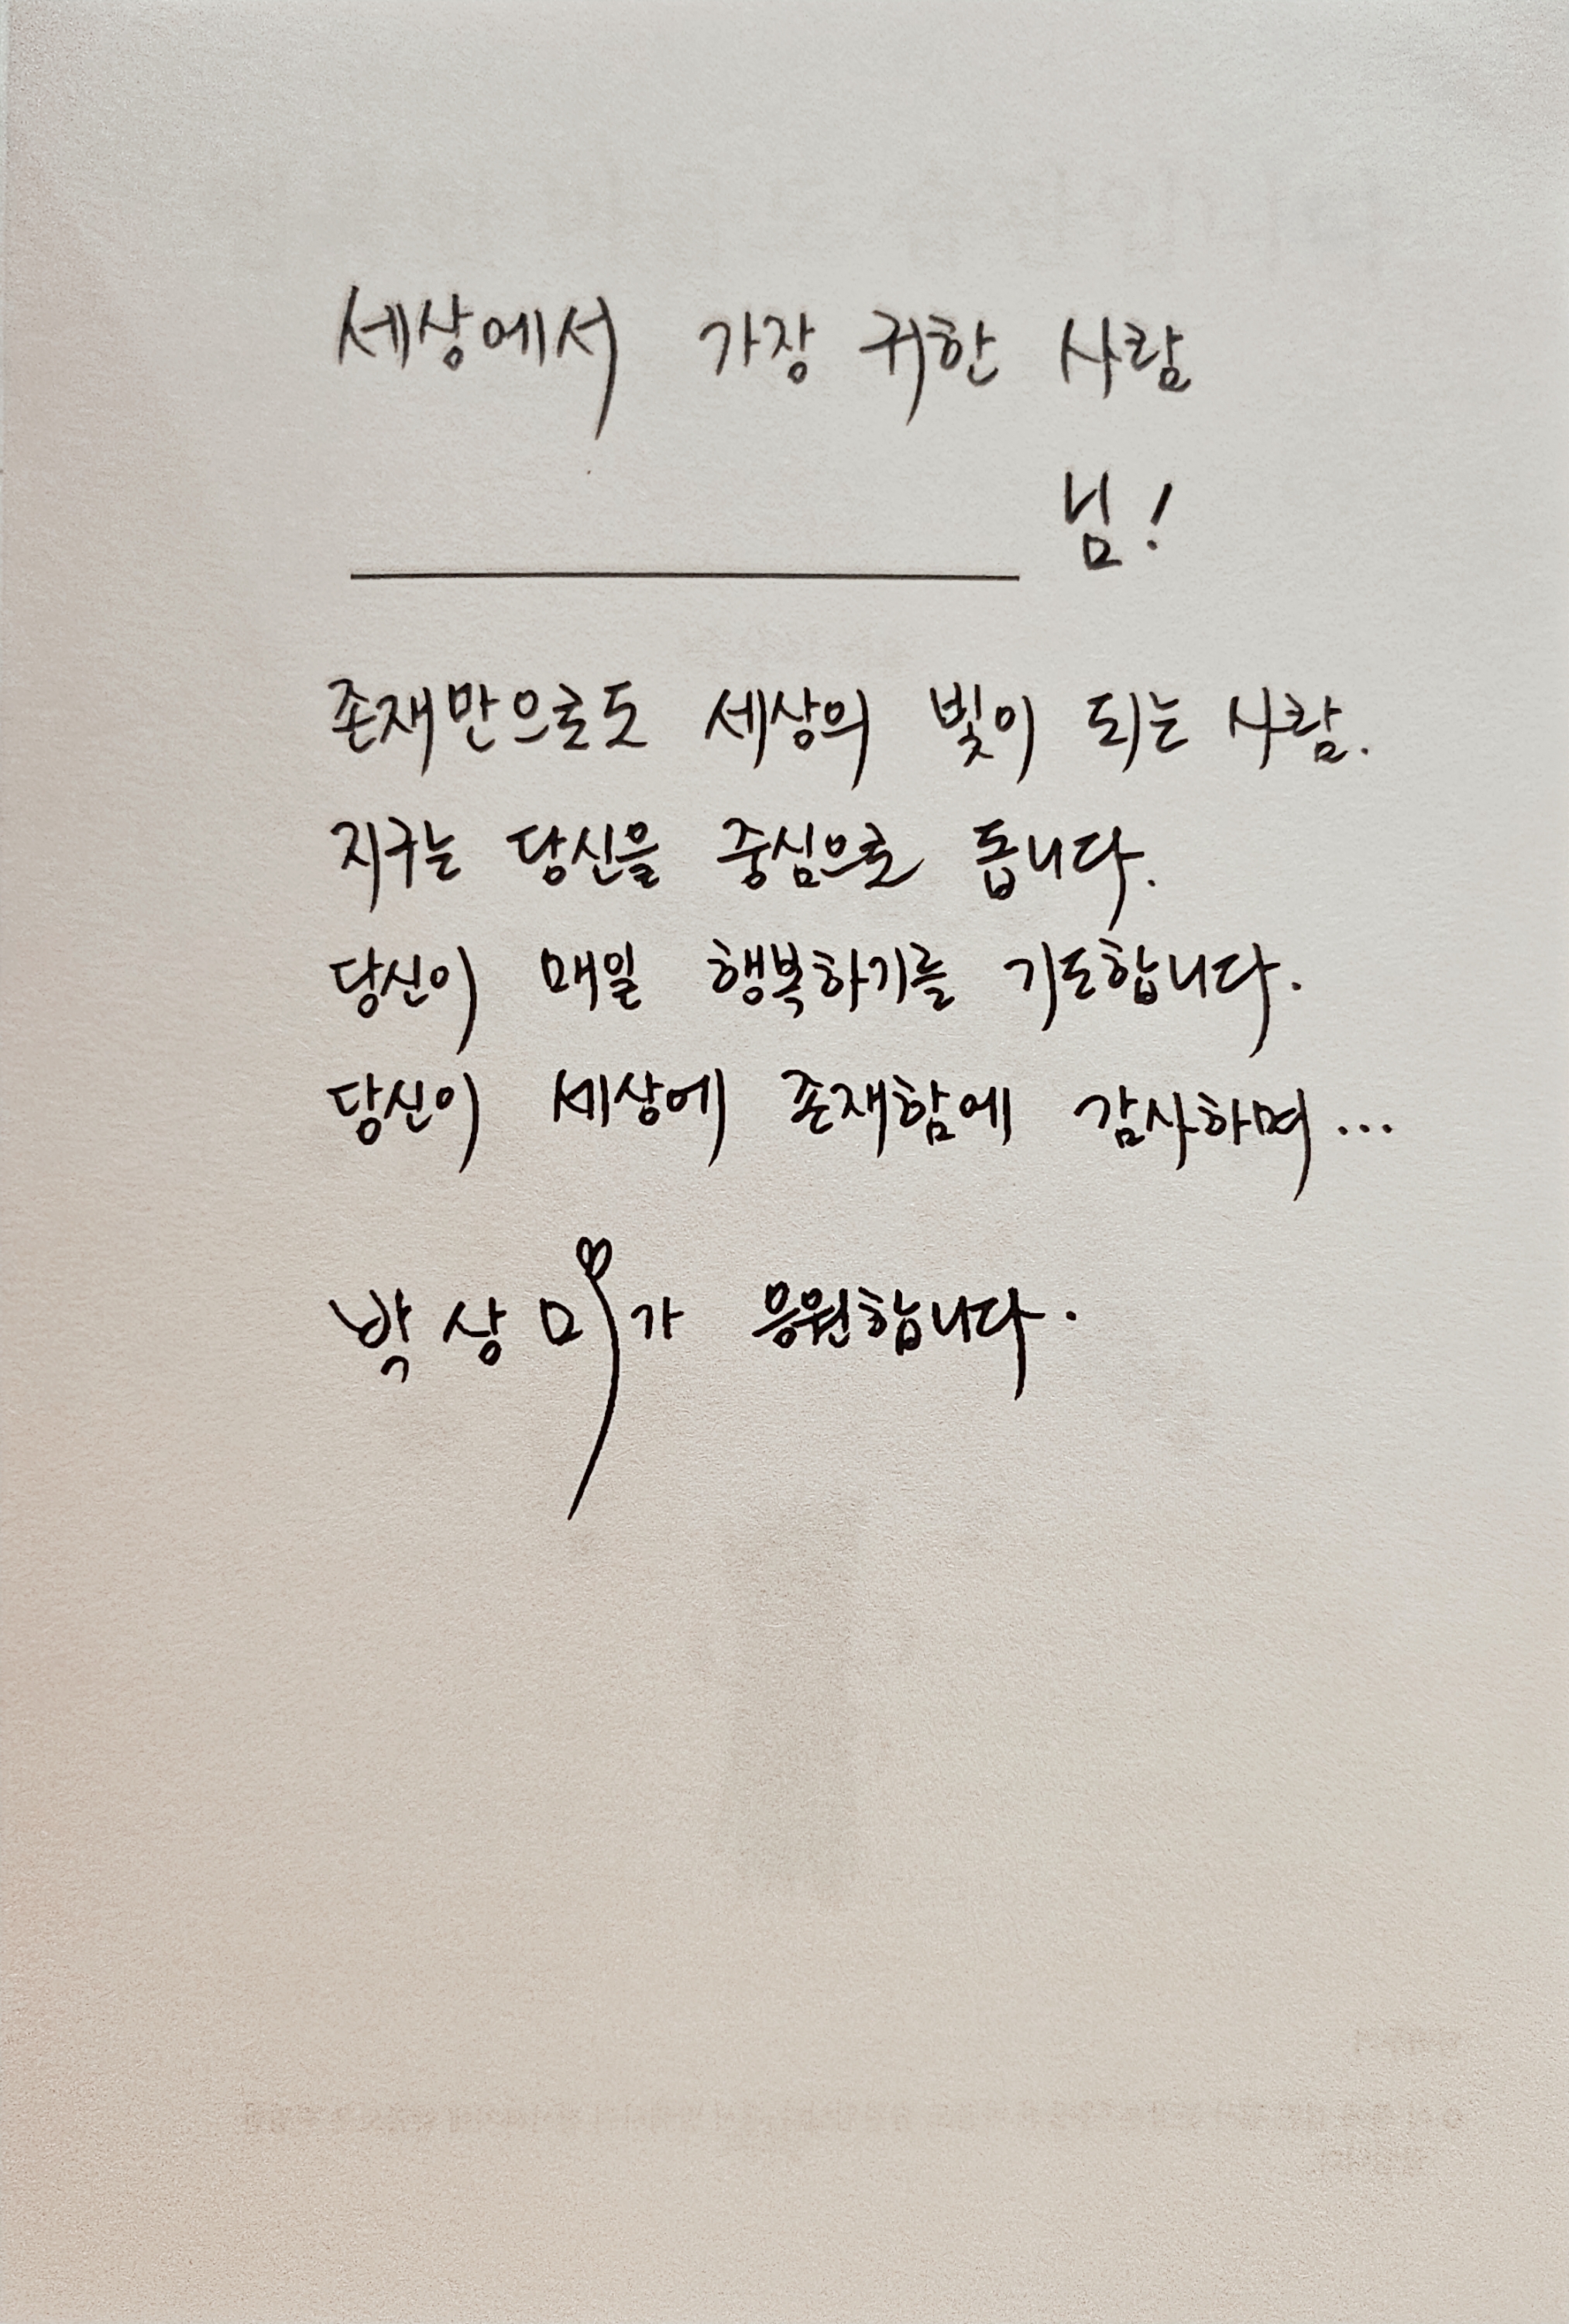 세상에서 가장 귀한 사람
님!
존재만으로도 세상의 빛이 되는 사람.
지구는 당신을 중심으로 돕니다.
당신이 매일 행복하기를 기도합니다.
당신이 세상에 존재함에 감사하며...
박상미가 응원합니다.